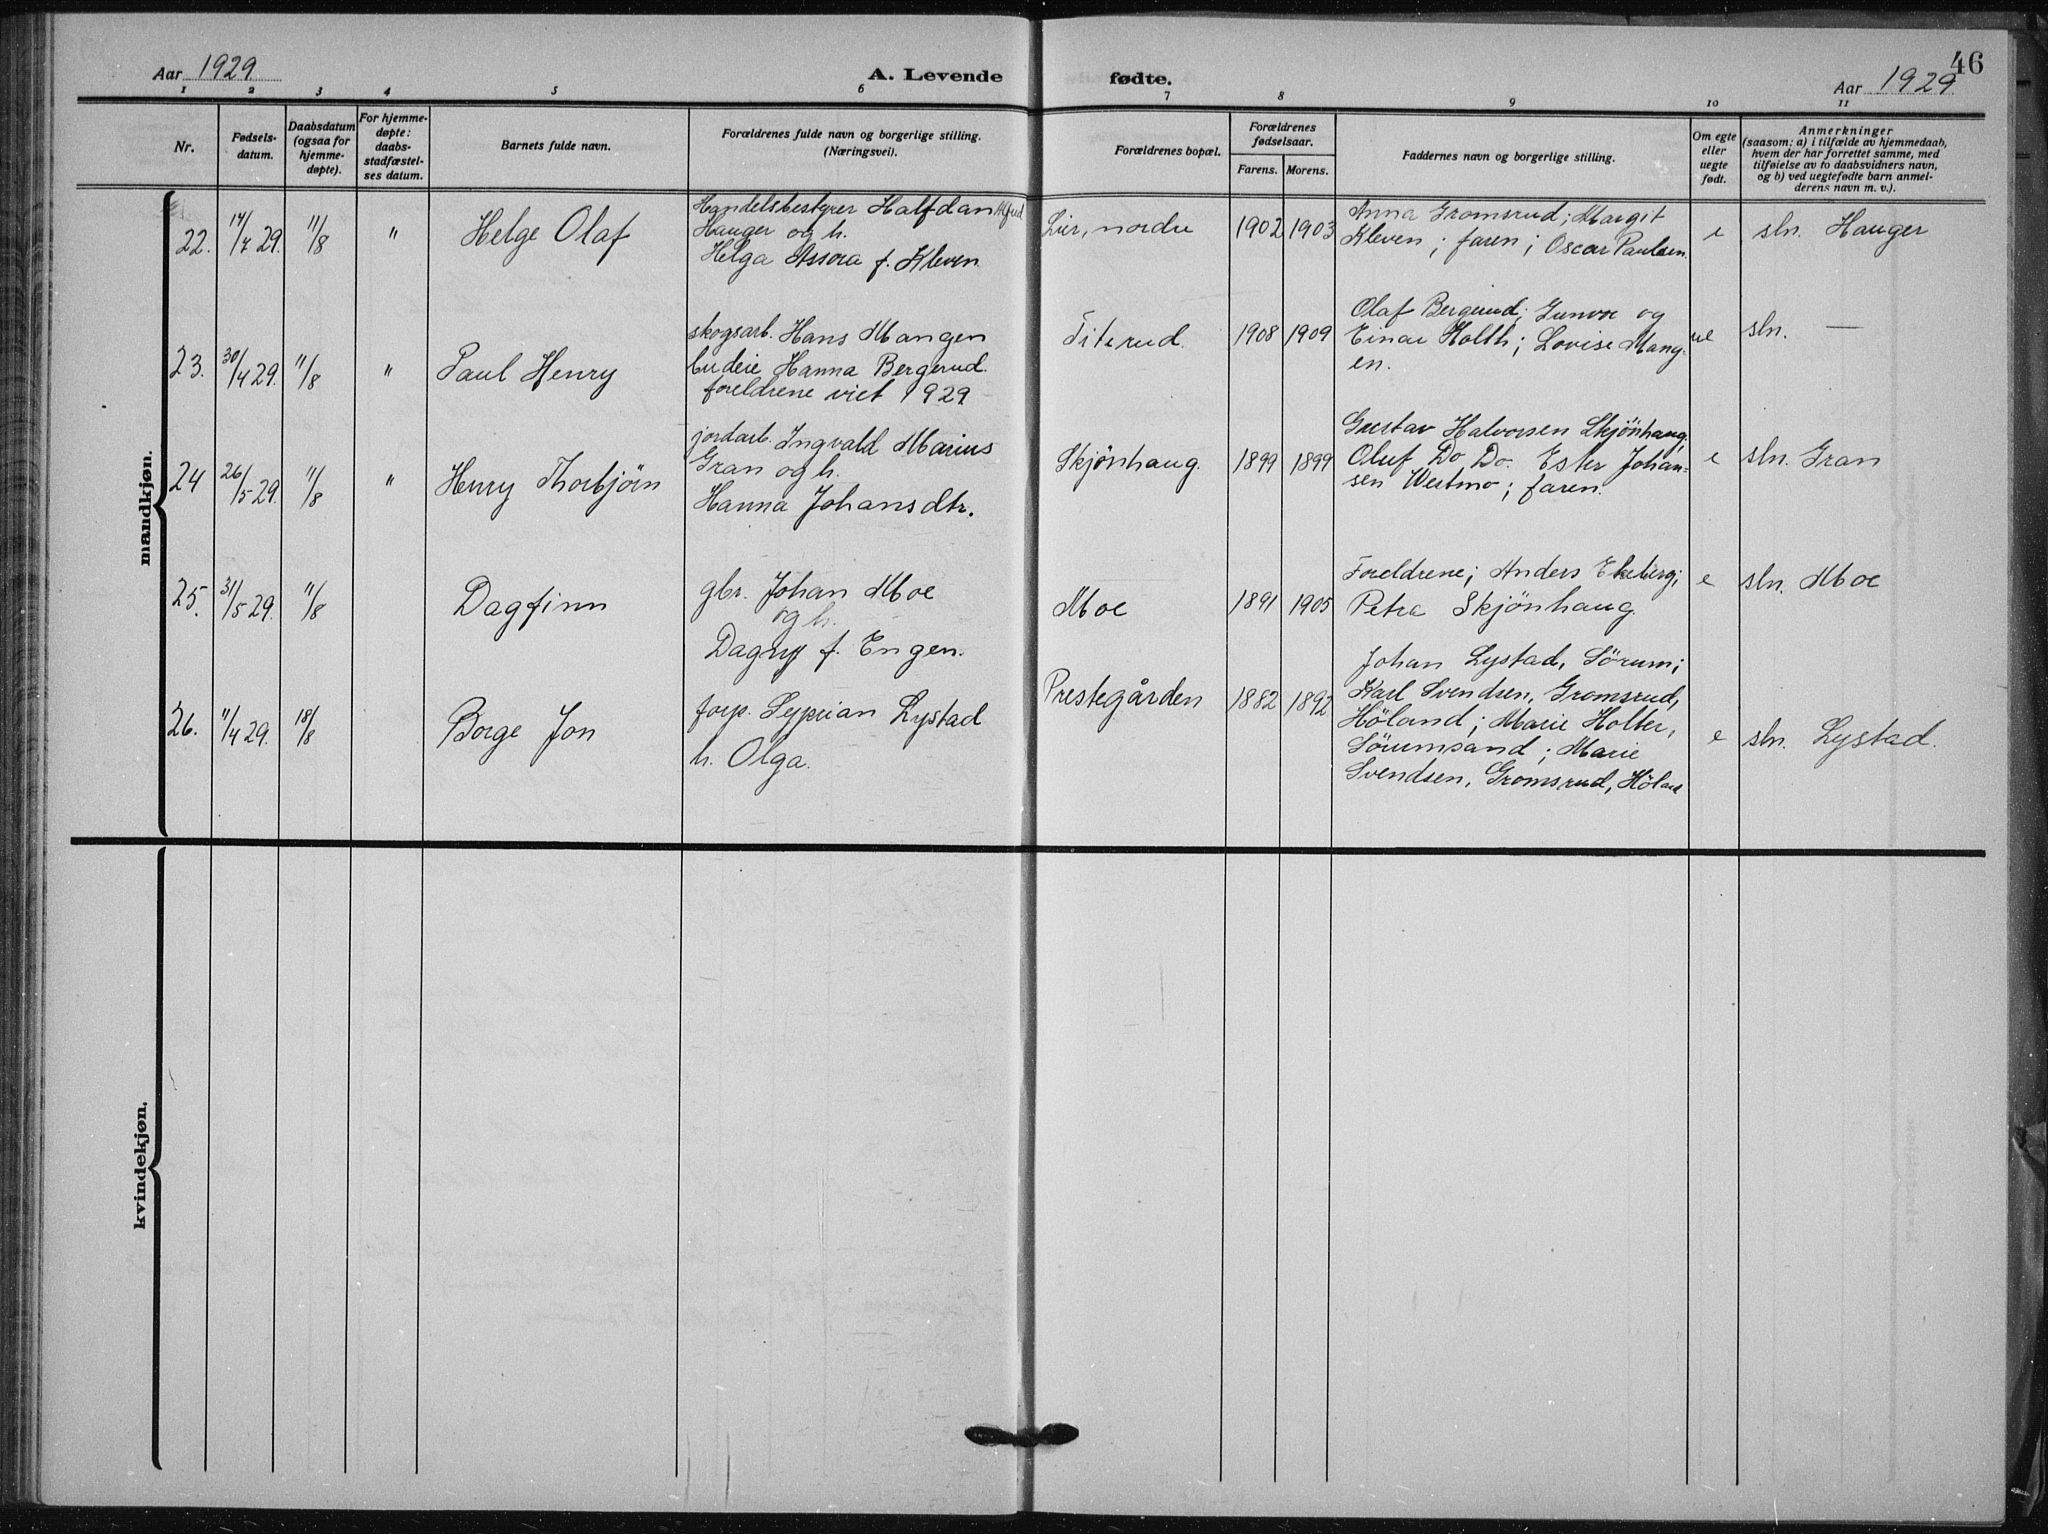 Aar 1929
A. Levende
fødte.
46
Aar 1929
1 2 3 4 5 6 7 8 9 10 11
Nr.
Fødsels-
datum.
Daabsdatum
(ogsaa for
hjemme-
døpte).
For hjemme-
døpte:
daabs-
stadfæstel-
ses datum.
Barnets fulde navn.
Forældrenes fulde navn og borgerlige stilling.
(Næringsvei).
Forældrenes bopæl.
Forældrenes
fødselsaar.
Farens. Morens.
Faddernes navn og borgerlige stilling.
Om egte
eller
uegte
født.
Anmerkninger
(saasom: a) i tilfælde av hjemmedaab,
hvem der har forrettet samme, med
tilføielse av to daabsvidners navn,
og b) ved uegtefødte barn anmel-
derens navn m. v.).
mandkjøn.
22. 14/7 29. 11/8 " Helge Olaf
Handelsbestyrer Halfdan Alfred
Hauger og h.
Helga Assora f. Kleven
Lier, nordre 1902 1903
Anna Gromsrud; Margit
Kleven; faren; Oscar Paulsen
e sln. Hauger
23. 30/4 29. 11/8 " Paul Henry
skogsarb. Hans Mangen
budeie Hanna Bergerud.
foreldrene viet 1929
Titerud. 1908 1909
Olaf Bergerud; Gunvor og
Einar Holth; Lovise Mang-
en.
ue sln. —
24 26/5 29. 11/8 " Henry Thorbjørn
jordarb. Ingvald Marius
Gran og h.
Hanna Johansdtr.
Skjönhaug. 1899 1899
Gustav Halvorsen Skjönhaug,
Oluf Do Do. Ester Johan-
sen Westmo; faren.
e sln. Gran
25. 31/5 29. 11/8 Dagfinn
gbr. Johan Moe
og h.
Dagny f. Engen.
Moe 1891 1905
Foreldrene; Anders Ekeberg;
Petra Skjönhaug.
e sln. Moe
26. 11/4 29. 18/8 Borge Jon
forp. Syprian Lystad
h. Olga.
Prestegården 1882 1892
Johan Lystad, Sörum;
Karl Svendsen, Gromsrud,
Höland; Marie Holter,
Sörumsand; Marie
Svendsen, Gromsrud, Höland
e sln. Lystad.
kvindekjøn.